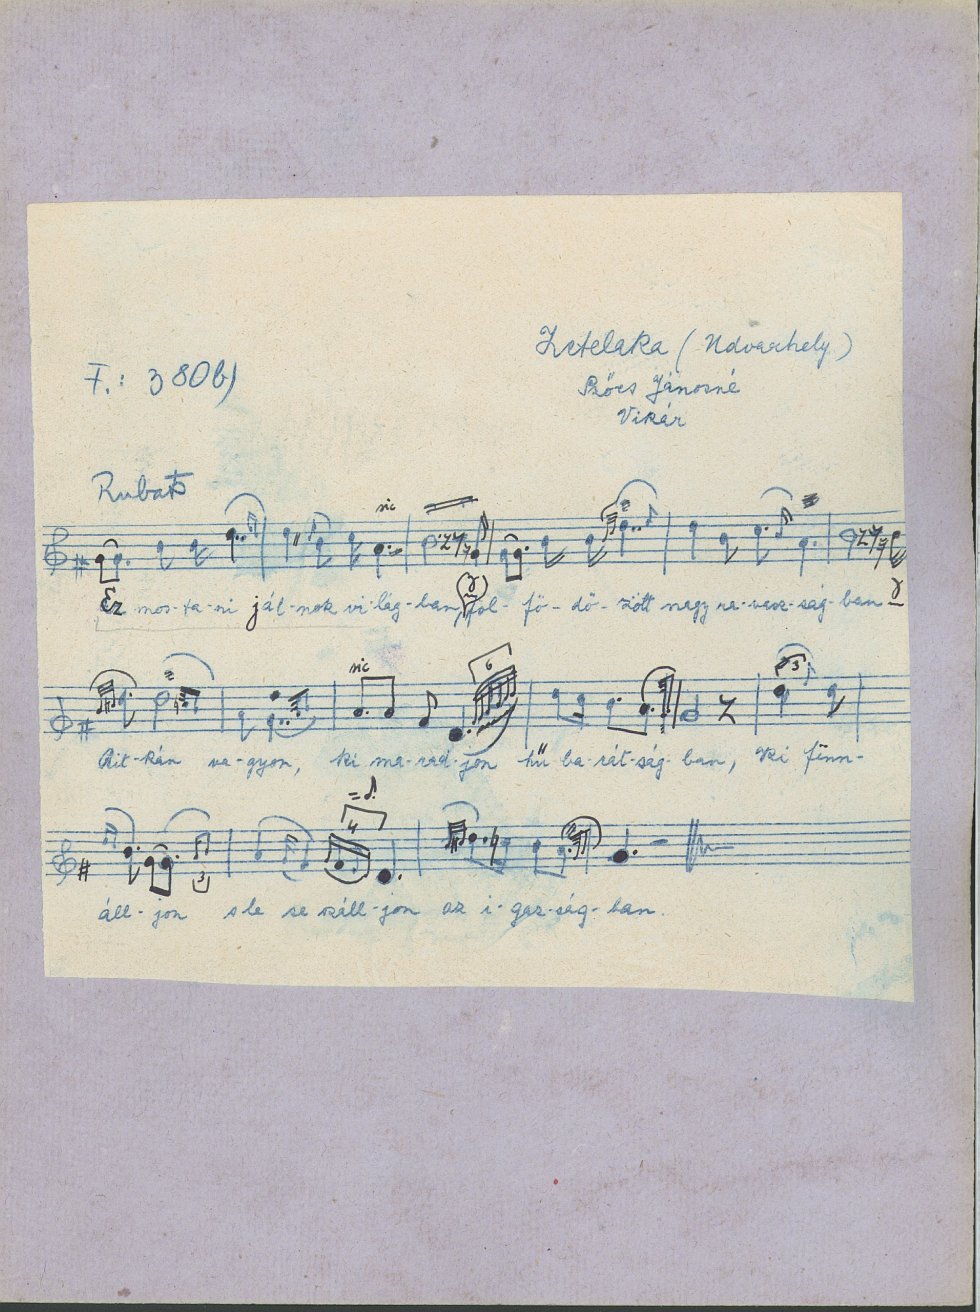 Zetelaka (Udvarhely)
F.: 380b)
Szőcs Jánosné
Vikár
Rubato
sic
Ez mos-ta-ni ját-nok vi-lág-ban, föl-fö-dö-zött nagy ra-vasz-ság-ban
sic 6 3
Rit-kán va-gyon, ki ma-rad-jon hű ba-rát-ság-ban, Ki fënn-
4 3
áll-jon s le se száll-jon az i-gaz-ság-ban.